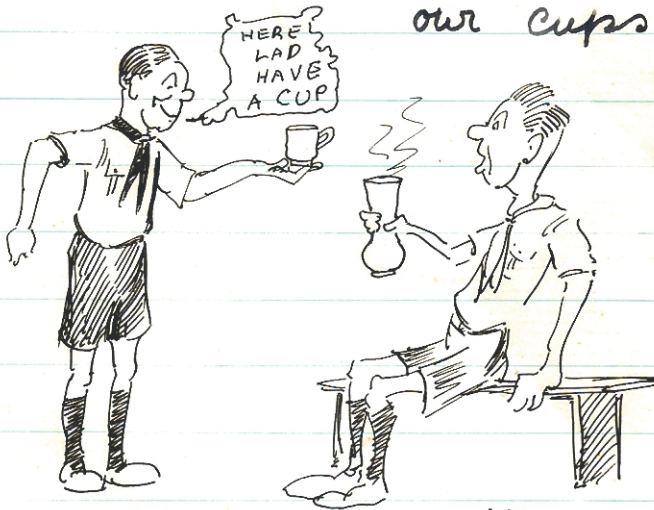 our cups
HERE
LAD
HAVE
A CUP